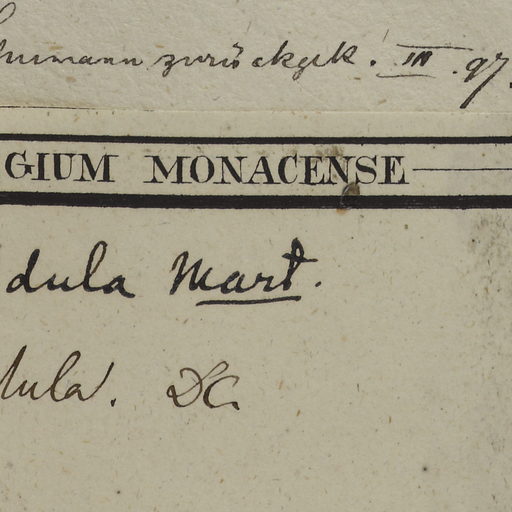 zurückgek. III. 97.
GIUM MONACENSE
dula Mart.
dula. DC.